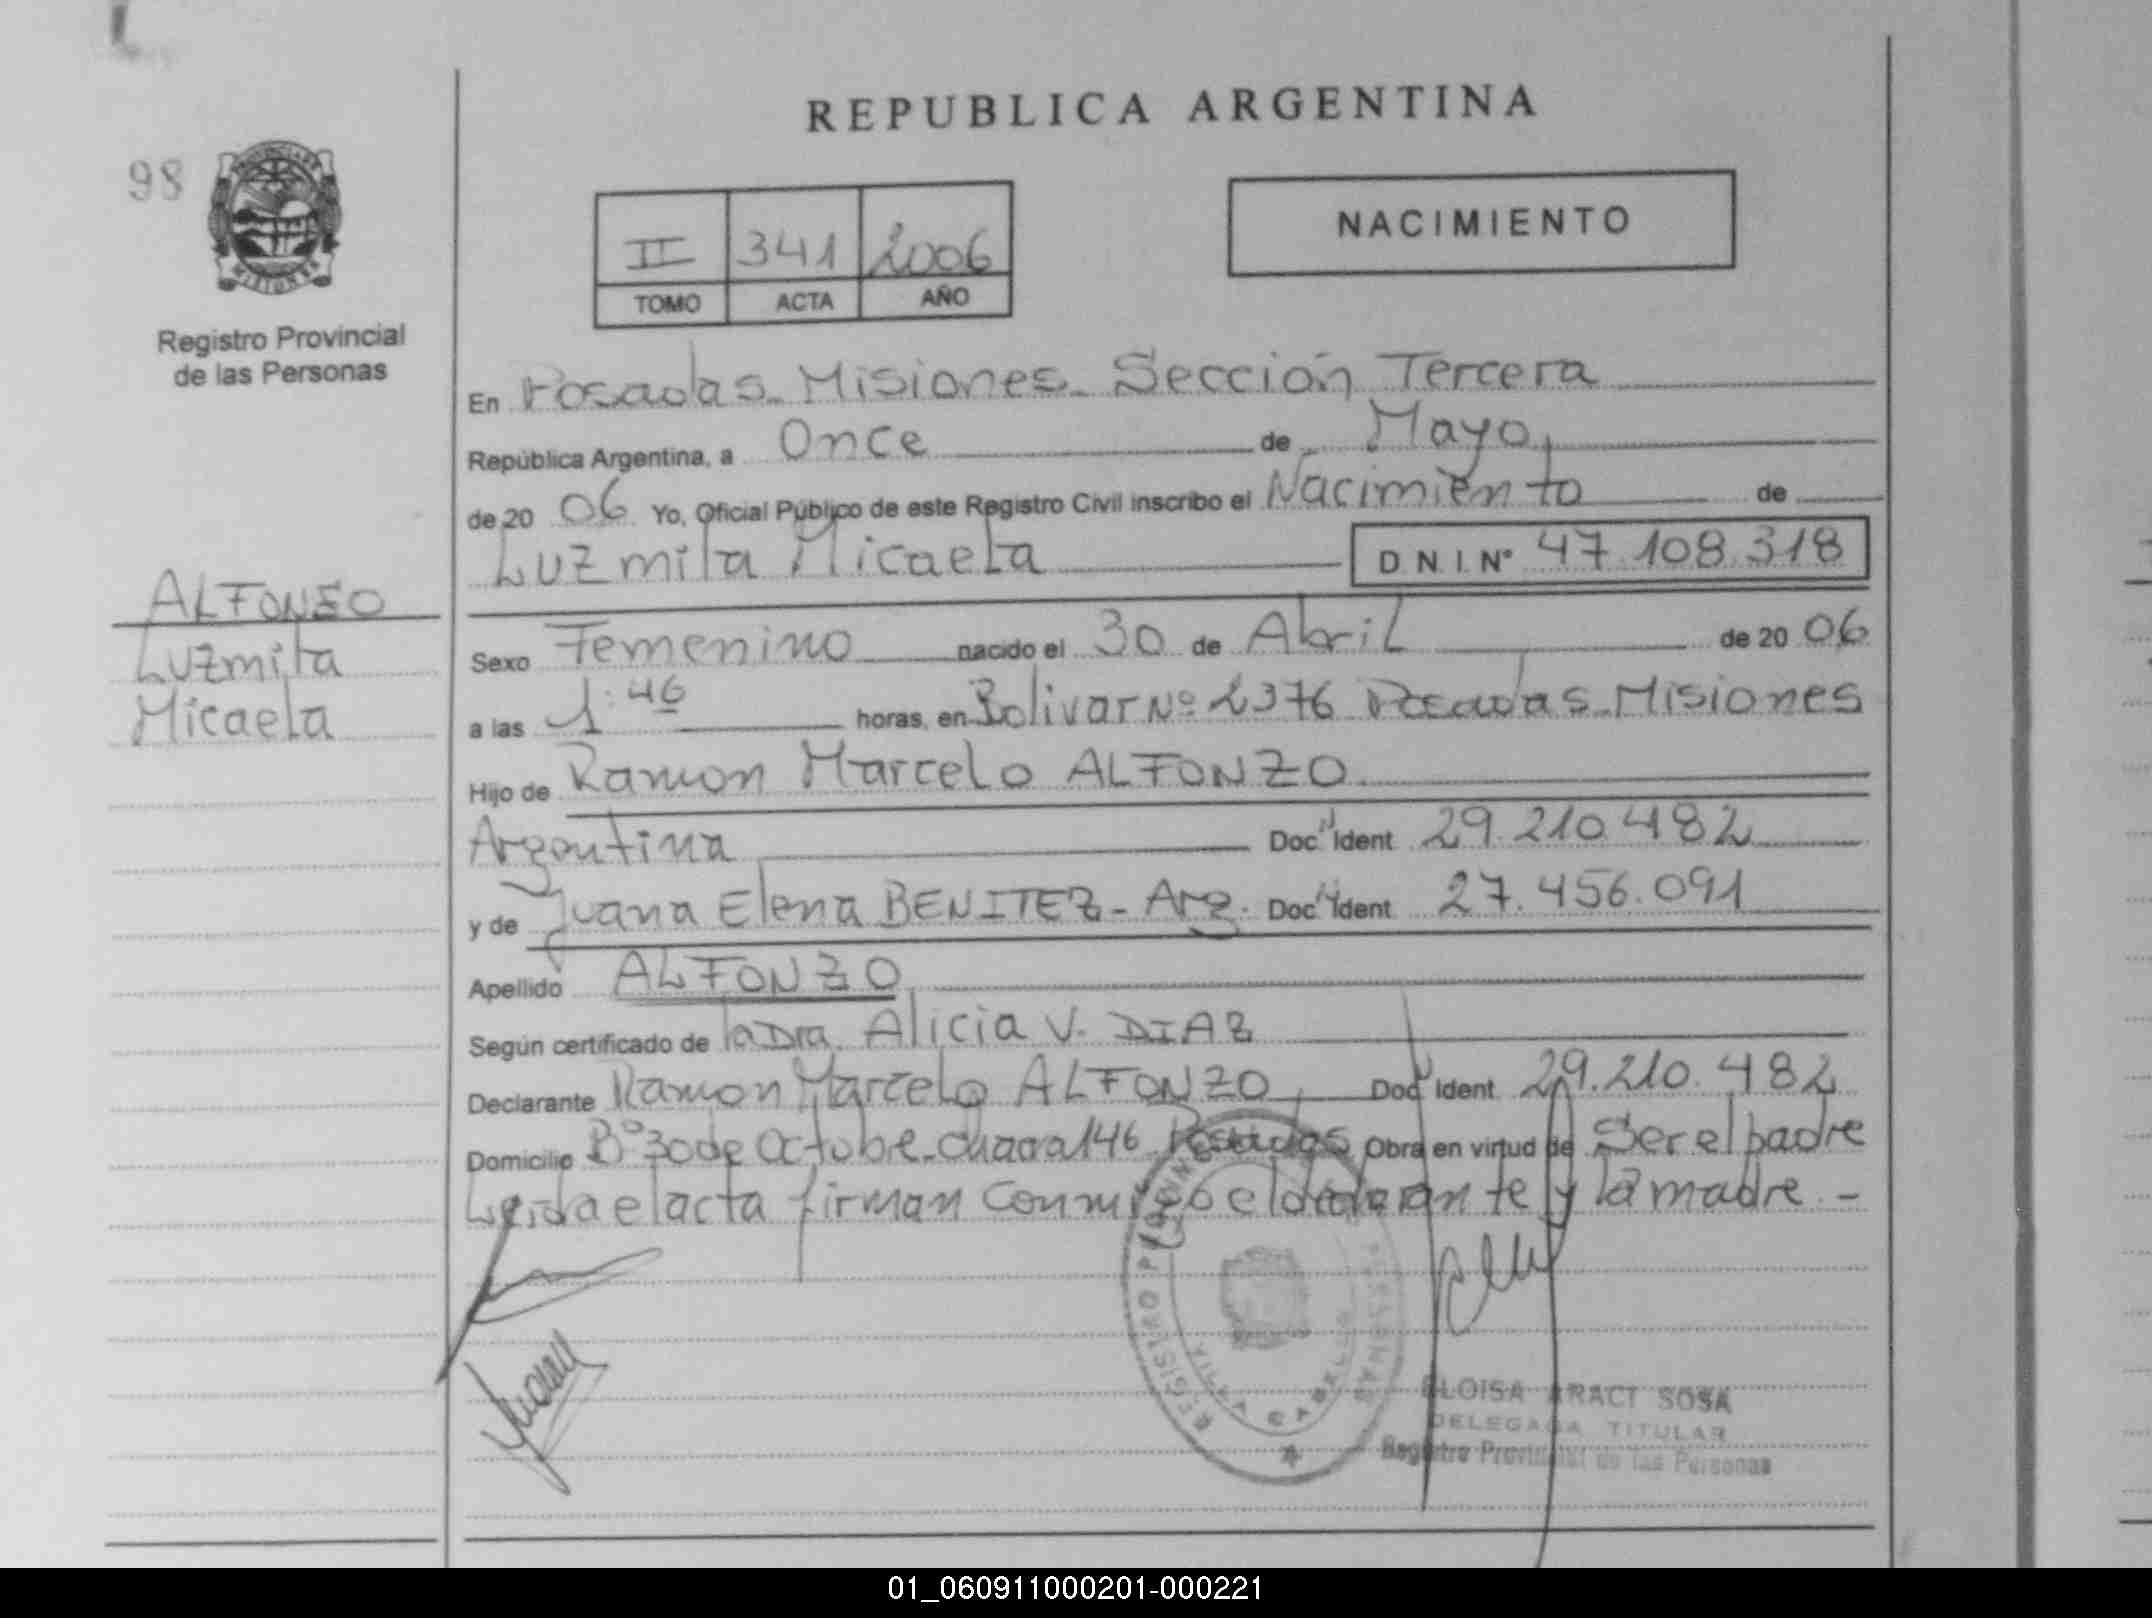 REPUBLICA ARGENTINA
98
II 341 2006
TOMO ACTA AÑO
NACIMIENTO
Registro Provincial
de las Personas
En Posadas Misiones Sección Tercera
República Argentina, a Once de Mayo
de 20 06 Yo, Oficial Público de este Registro Civil inscribo el Nacimiento de
Luzmila Micaela D.N.I. Nº 47.108.318
ALFONZO
Luzmila
Micaela
Sexo Femenino nacido el 30 de Abril de 20 06
a las 1:46 horas, en Bolivar Nº 2376 Posadas Misiones
Hijo de Ramon Marcelo ALFONZO
Argentina Doc Ident 29.210.482
y de Juana Elena BENITEZ - Arg. Doc Ident 27.456.091
Apellido ALFONZO
Según certificado de la Dra. Alicia V. DIAZ
Declarante Ramon Marcelo ALFONZO Doc Ident 29.210.482
Domicilio Bº 30 de Octubre Chacra 146 Posadas Obra en virtud de Ser el padre
Leida el acta firman conmigo el declarante y la madre. -
Juana
REGISTRO PROVINCIAL PERSONAS
ELOISA ARACI SOSA
DELEGADA TITULAR
Registro Provincial de las Personas
01_060911000201-000221